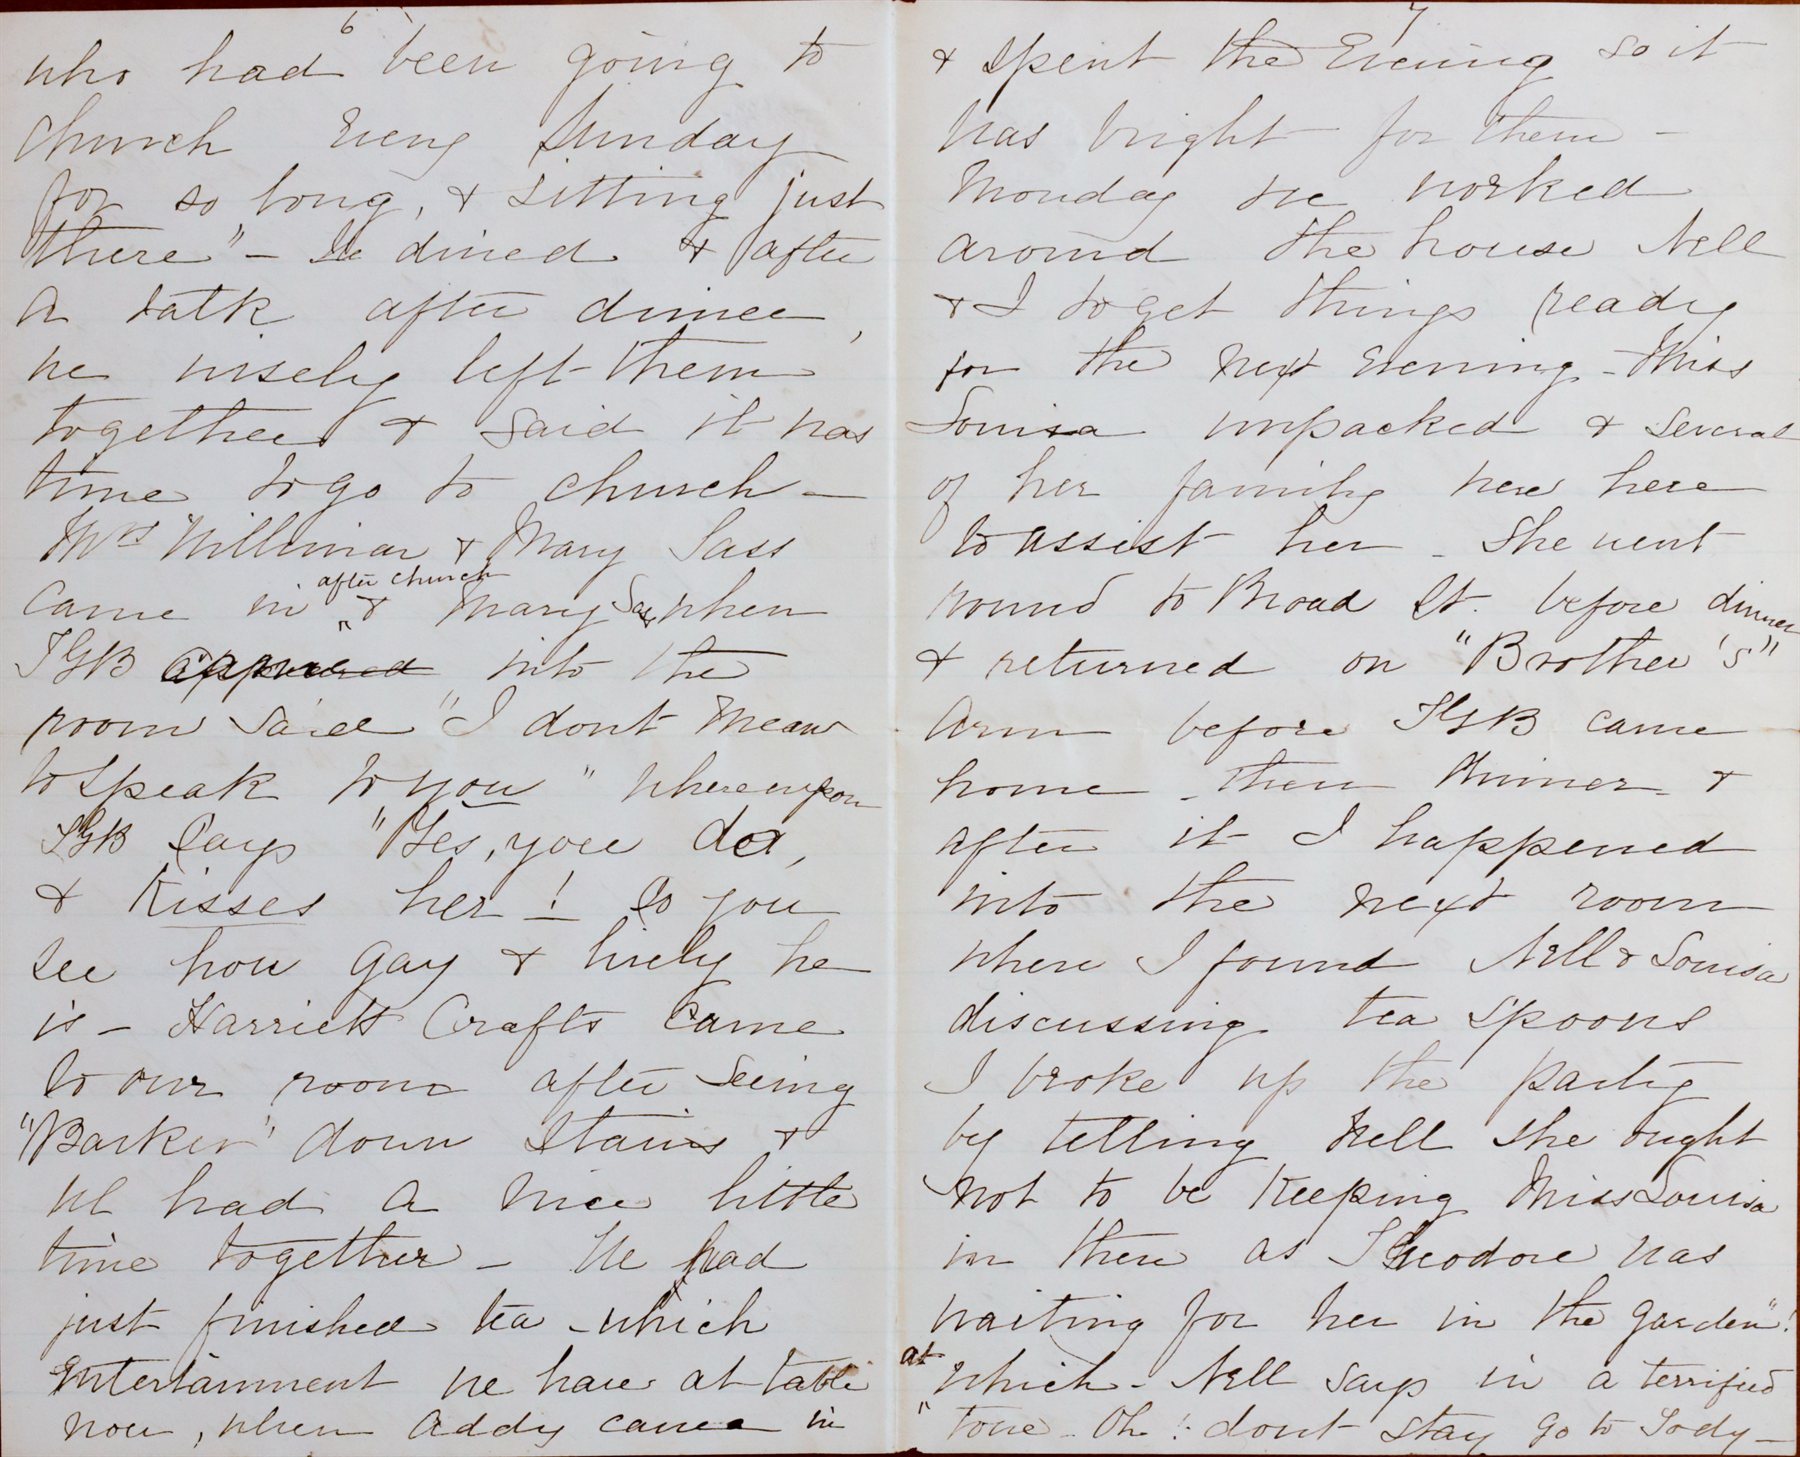 6
who had been going to
church Every Sunday
for so long, & sitting just
there" - We dined & after
a talk after dinner,
we wisely left them
together & said it was
time to go to church -
Mrs Willimar & Mary Sass
after church
came in & Mary Sass when
TGB appeared into the
room said "I dont mean
to speak to you" whereupon
TGB says "Yes, you do,
& Kisses her! So you
see how gay & lively he
is - Harriett Crafts came
to our room after seeing
"Barker" down stairs &
we had a nice little
time together - We had
just finished tea - which
Entertainment we have at table
now, when Addy came in
7
& spent the Evening so it
was bright for them -
Monday we worked
around the house Nell
& I to get things ready
for the next Evening - Miss
Louisa unpacked & several
of her family were here
to assist her - She went
round to Broad St. before dinner
& returned on "Brother's"
arm before TGB came
home - then dinner &
after it I happened
into the next room
where I found Nell & Louisa
discussing tea spoons
I broke up the party
by telling Nell she ought
not to be keeping Miss Louisa
in there as Theodore was
waiting for her in the garden"!
at which - Nell says in a terrified
tone - "Oh! dont stay go to Tody -